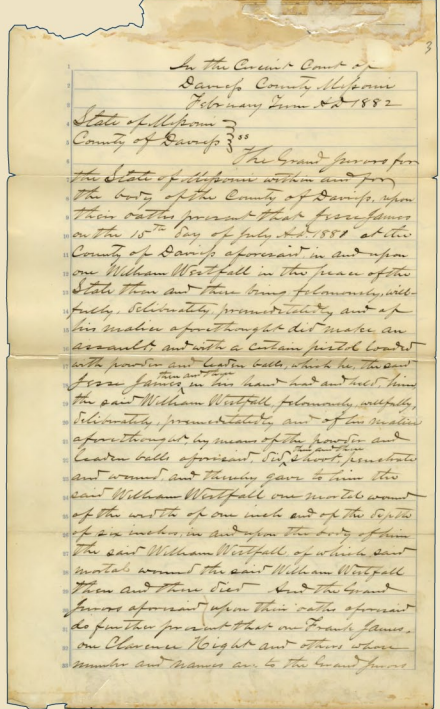 3
In the Circuit Court of
Daviess County Missouri
February Term A.D. 1882
State of Missouri
County of Daviess } ss
The Grand Jurors for
the State of Missouri within and for
the body of the County of Daviess, upon
their oaths present that Jesse James
on the 15th day of July A.D. 1881 at the
County of Daviess aforesaid, in and upon
one William Westfall in the peace of the
State then and there being feloniously, will-
fully, deliberately, premeditatedly and of
his malice aforethought did make an
assault, and with a certain pistol loaded
with powder and leaden balls, which he, the said
Jesse James, then and there in his hand had and held, him
the said William Westfall feloniously, willfully,
deliberately, premeditatedly and of his malice
aforethought, by means of the powder and
leaden balls aforesaid, did then and there shoot, penetrate
and wound, and thereby gave to him the
said William Westfall one mortal wound
of the width of one inch and of the depth
of six inches, in and upon the body of him
the said William Westfall, of which said
mortal wound the said William Westfall
then and there died And the Grand
Jurors aforesaid upon their oaths aforesaid
do further present that one Frank James,
one Clarence Hight and others whose
number and names are to the Grand Jurors